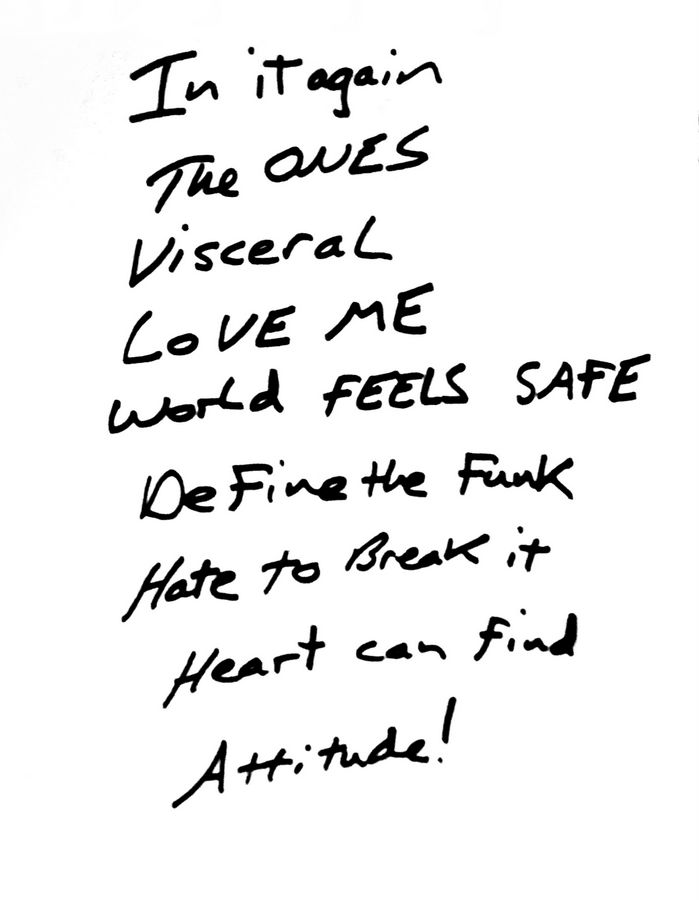 In it again
The ONES
Visceral
LOVE ME
World FEELS SAFE
DeFine the Funk
Hate to Break it
Heart can Find
Attitude!